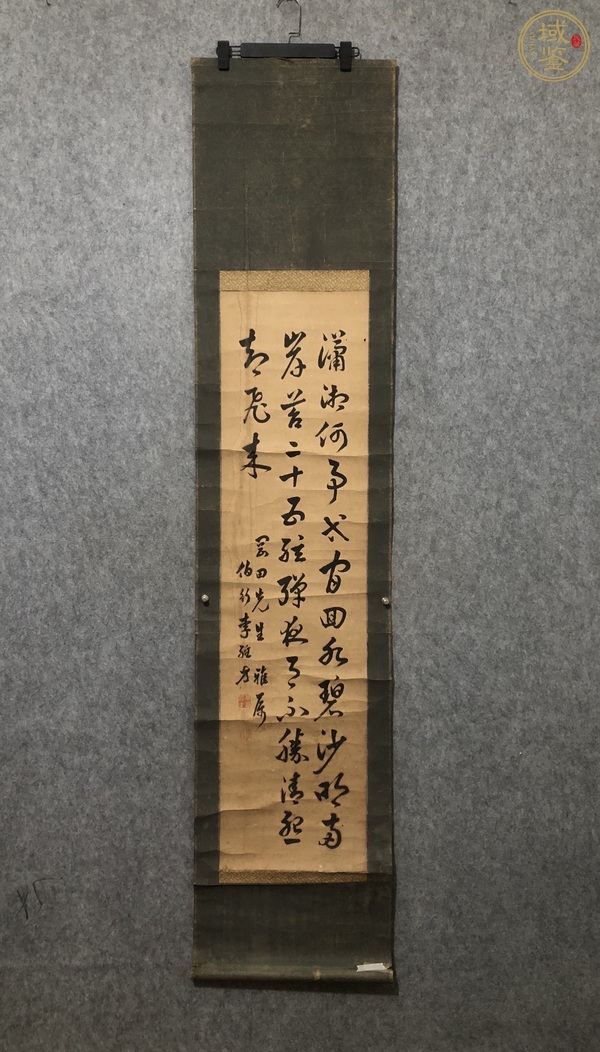 瀟湘何事等閒回水碧沙明兩
岸苔二十五絃彈夜月不勝清怨
却飛來
岡田先生雅屬
伯行李經方
域鉴